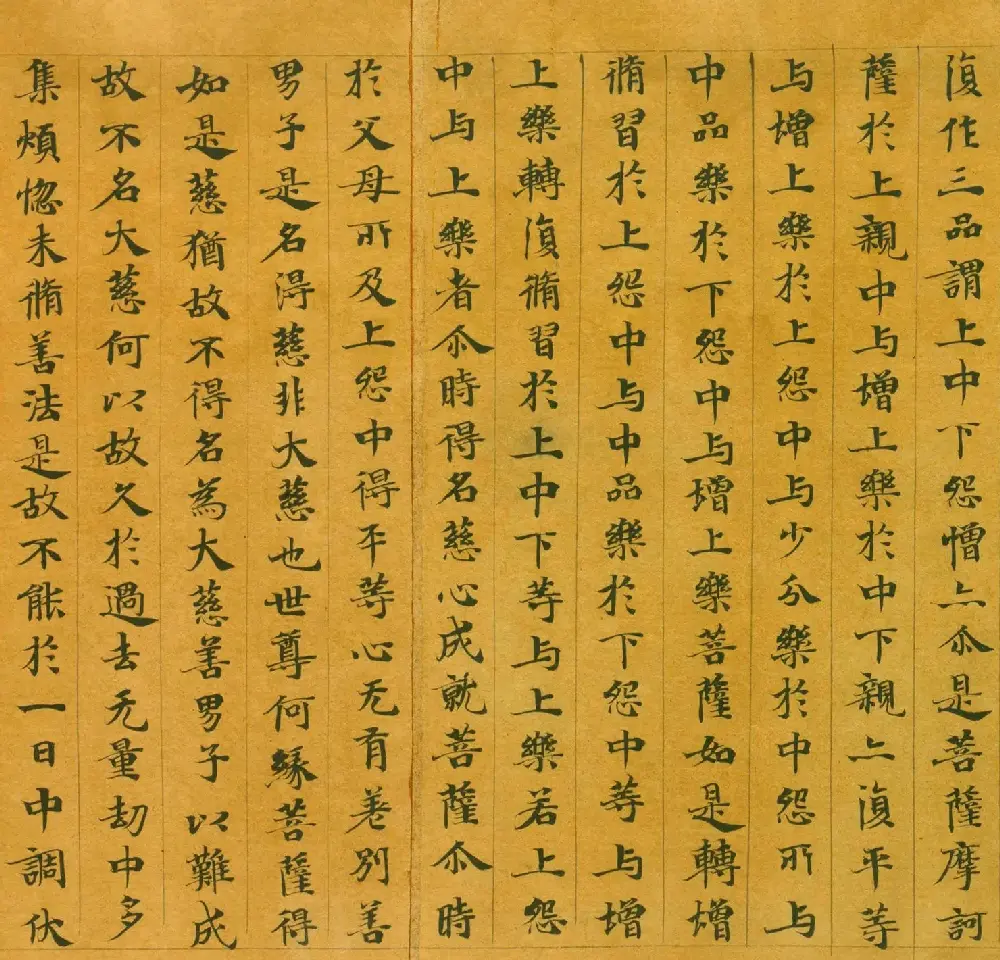 復作三品謂上中下怨憎亦尒是菩薩摩訶
薩於上親中与增上樂於中下親亦復平等
与增上樂於上怨中与少分樂於中怨所与
中品樂於下怨中与增上樂菩薩如是轉增
脩習於上怨中与中品樂於下怨中等与增
上樂轉復脩習於上中下等与上樂若上怨
中与上樂者尒時得名慈心成就菩薩尒時
於父母所及上怨中得平等心无有差別善
男子是名得慈非大慈也世尊何緣菩薩得
如是慈猶故不得名為大慈善男子以難成
故不名大慈何以故久於過去无量劫中多
集煩惚未脩善法是故不能於一日中調伏